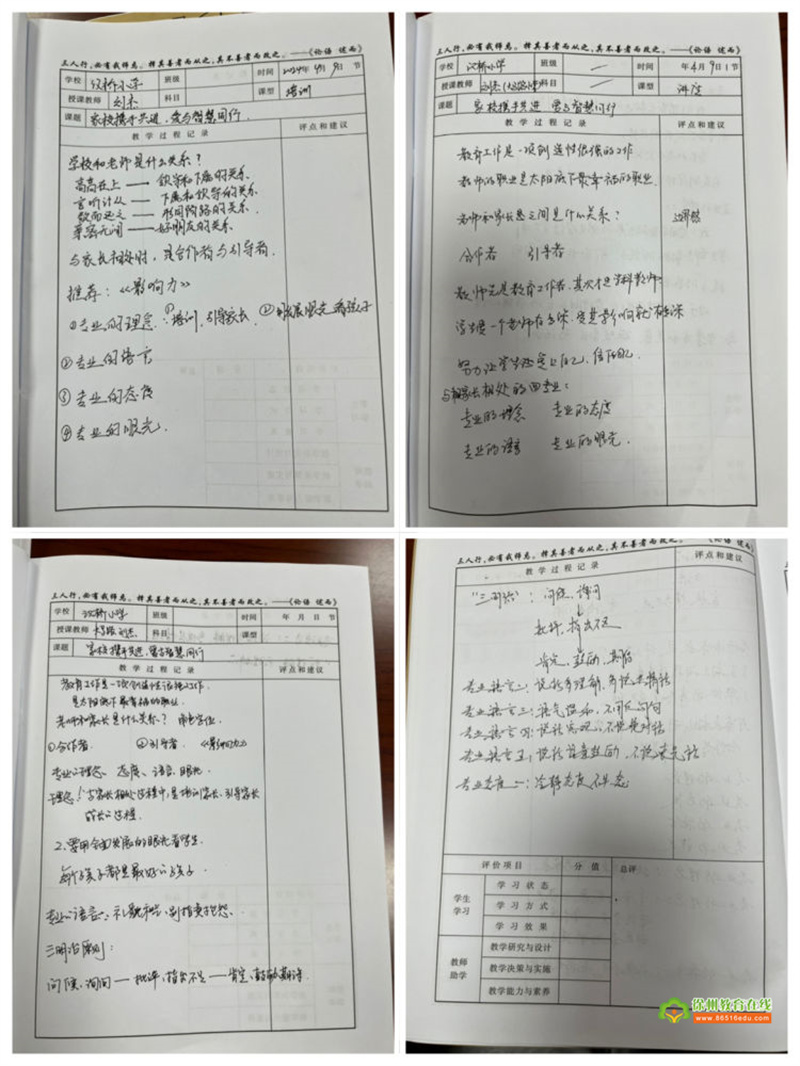 三人行，必有我师焉。择其善者而从之，其不善者而改之。——《论语 述而》
学校 汉桥小学 班级 时间 2024年4月9日节
授课教师 科目 课型 培训
课题 家校携手共进，爱与智慧同行
教 学 过 程 记 录 评点和建议
学校和老师是什么关系？
高高在上——领导和下属的关系
言听计从——下属和领导的关系
敬而远之——形同陌路的关系
亲密无间——好朋友的关系
与家长相处时，是合作者与引导者。
推荐：《影响力》
①专业的理念：①培训，引导家长 ②用发展眼光看孩子
②专业的语言
③专业的态度
④专业的眼光
三人行，必有我师焉。择其善者而从之，其不善者而改之。——《论语 述而》
学校 汉桥小学 班级 时间 年4月9日1节
授课教师 科目 课型 讲座
课题 家校携手共进 爱与智慧同行
教 学 过 程 记 录 评点和建议
教育工作是一项创造性很强的工作
教师的职业是太阳底下最幸福的职业
老师和家长是之间是什么关系？
合作者 引导者
教师先是教育工作者，其次才是学科教师
努力让学生还是
与家长相处的四专业：
专业的理念 专业的态度
专业的语言 专业的眼光
三人行，必有我师焉。择其善者而从之，其不善者而改之。——《论语 述而》
学校 汉桥小学 班级 时间 年 月 日 节
授课教师 科目 课型
课题 家校携手共进，爱与智慧同行
教 学 过 程 记 录 评点和建议
教育工作是一项创造性很强工作
是太阳底下最幸福的职业
老师和家长是什么关系？ 角色定位
①合作者 ②引导者 《影响力》
专业的理念、态度、语言、眼光
理念：1.与家长相处过程中，是培训家长、引导家长
成长的过程
2.要用全面发展的眼光看学生
每个孩子都是最好的孩子
专业的语言：礼貌和善、别指责抱怨。
三明治原则：
问候、询问——批评，指出不足——肯定，鼓励，期待
三人行，必有我师焉。择其善者而从之，其不善者而改之。——《论语 述而》
教 学 过 程 记 录 评点和建议
“三明治”：问候，询问
批评，指出不足
肯定，鼓励，期待
专业语言二：说话有理解，
专业语言三：语气温和，不用反问句
专业语言四：说话客观，不说绝对话
专业语言五：说话
专业态度一：冷静态度
评 价 项 目 分 值 总评
学生学习 学 习 状 态
学 习 方 式
学 习 效 果
教师助学 教学研究与设计
教学决策与实施
教学能力与素养
徐州教育在线
www.66516edu.com